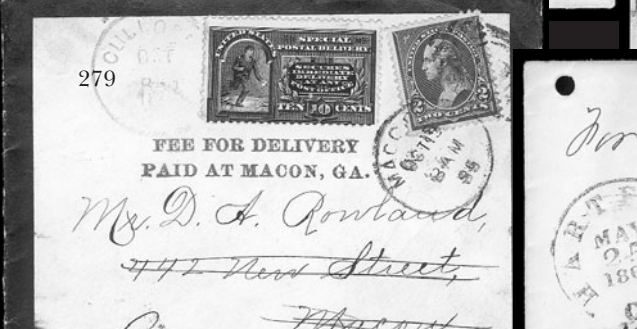 CULLO
OCT
279
UNITED STATES
SPECIAL
POSTAL DELIVERY
SECURES
IMMEDIATE
DELIVERY
AT ANY
POST OFFICE
TEN 10 CENTS
2 2
TWO CENTS
MACO
OCT 15
8 AM
95
FEE FOR DELIVERY
PAID AT MACON, GA.
Mr. D. A. Rowland,
442 New Street,
Macon
For
HARTF
MAY
2 A
188